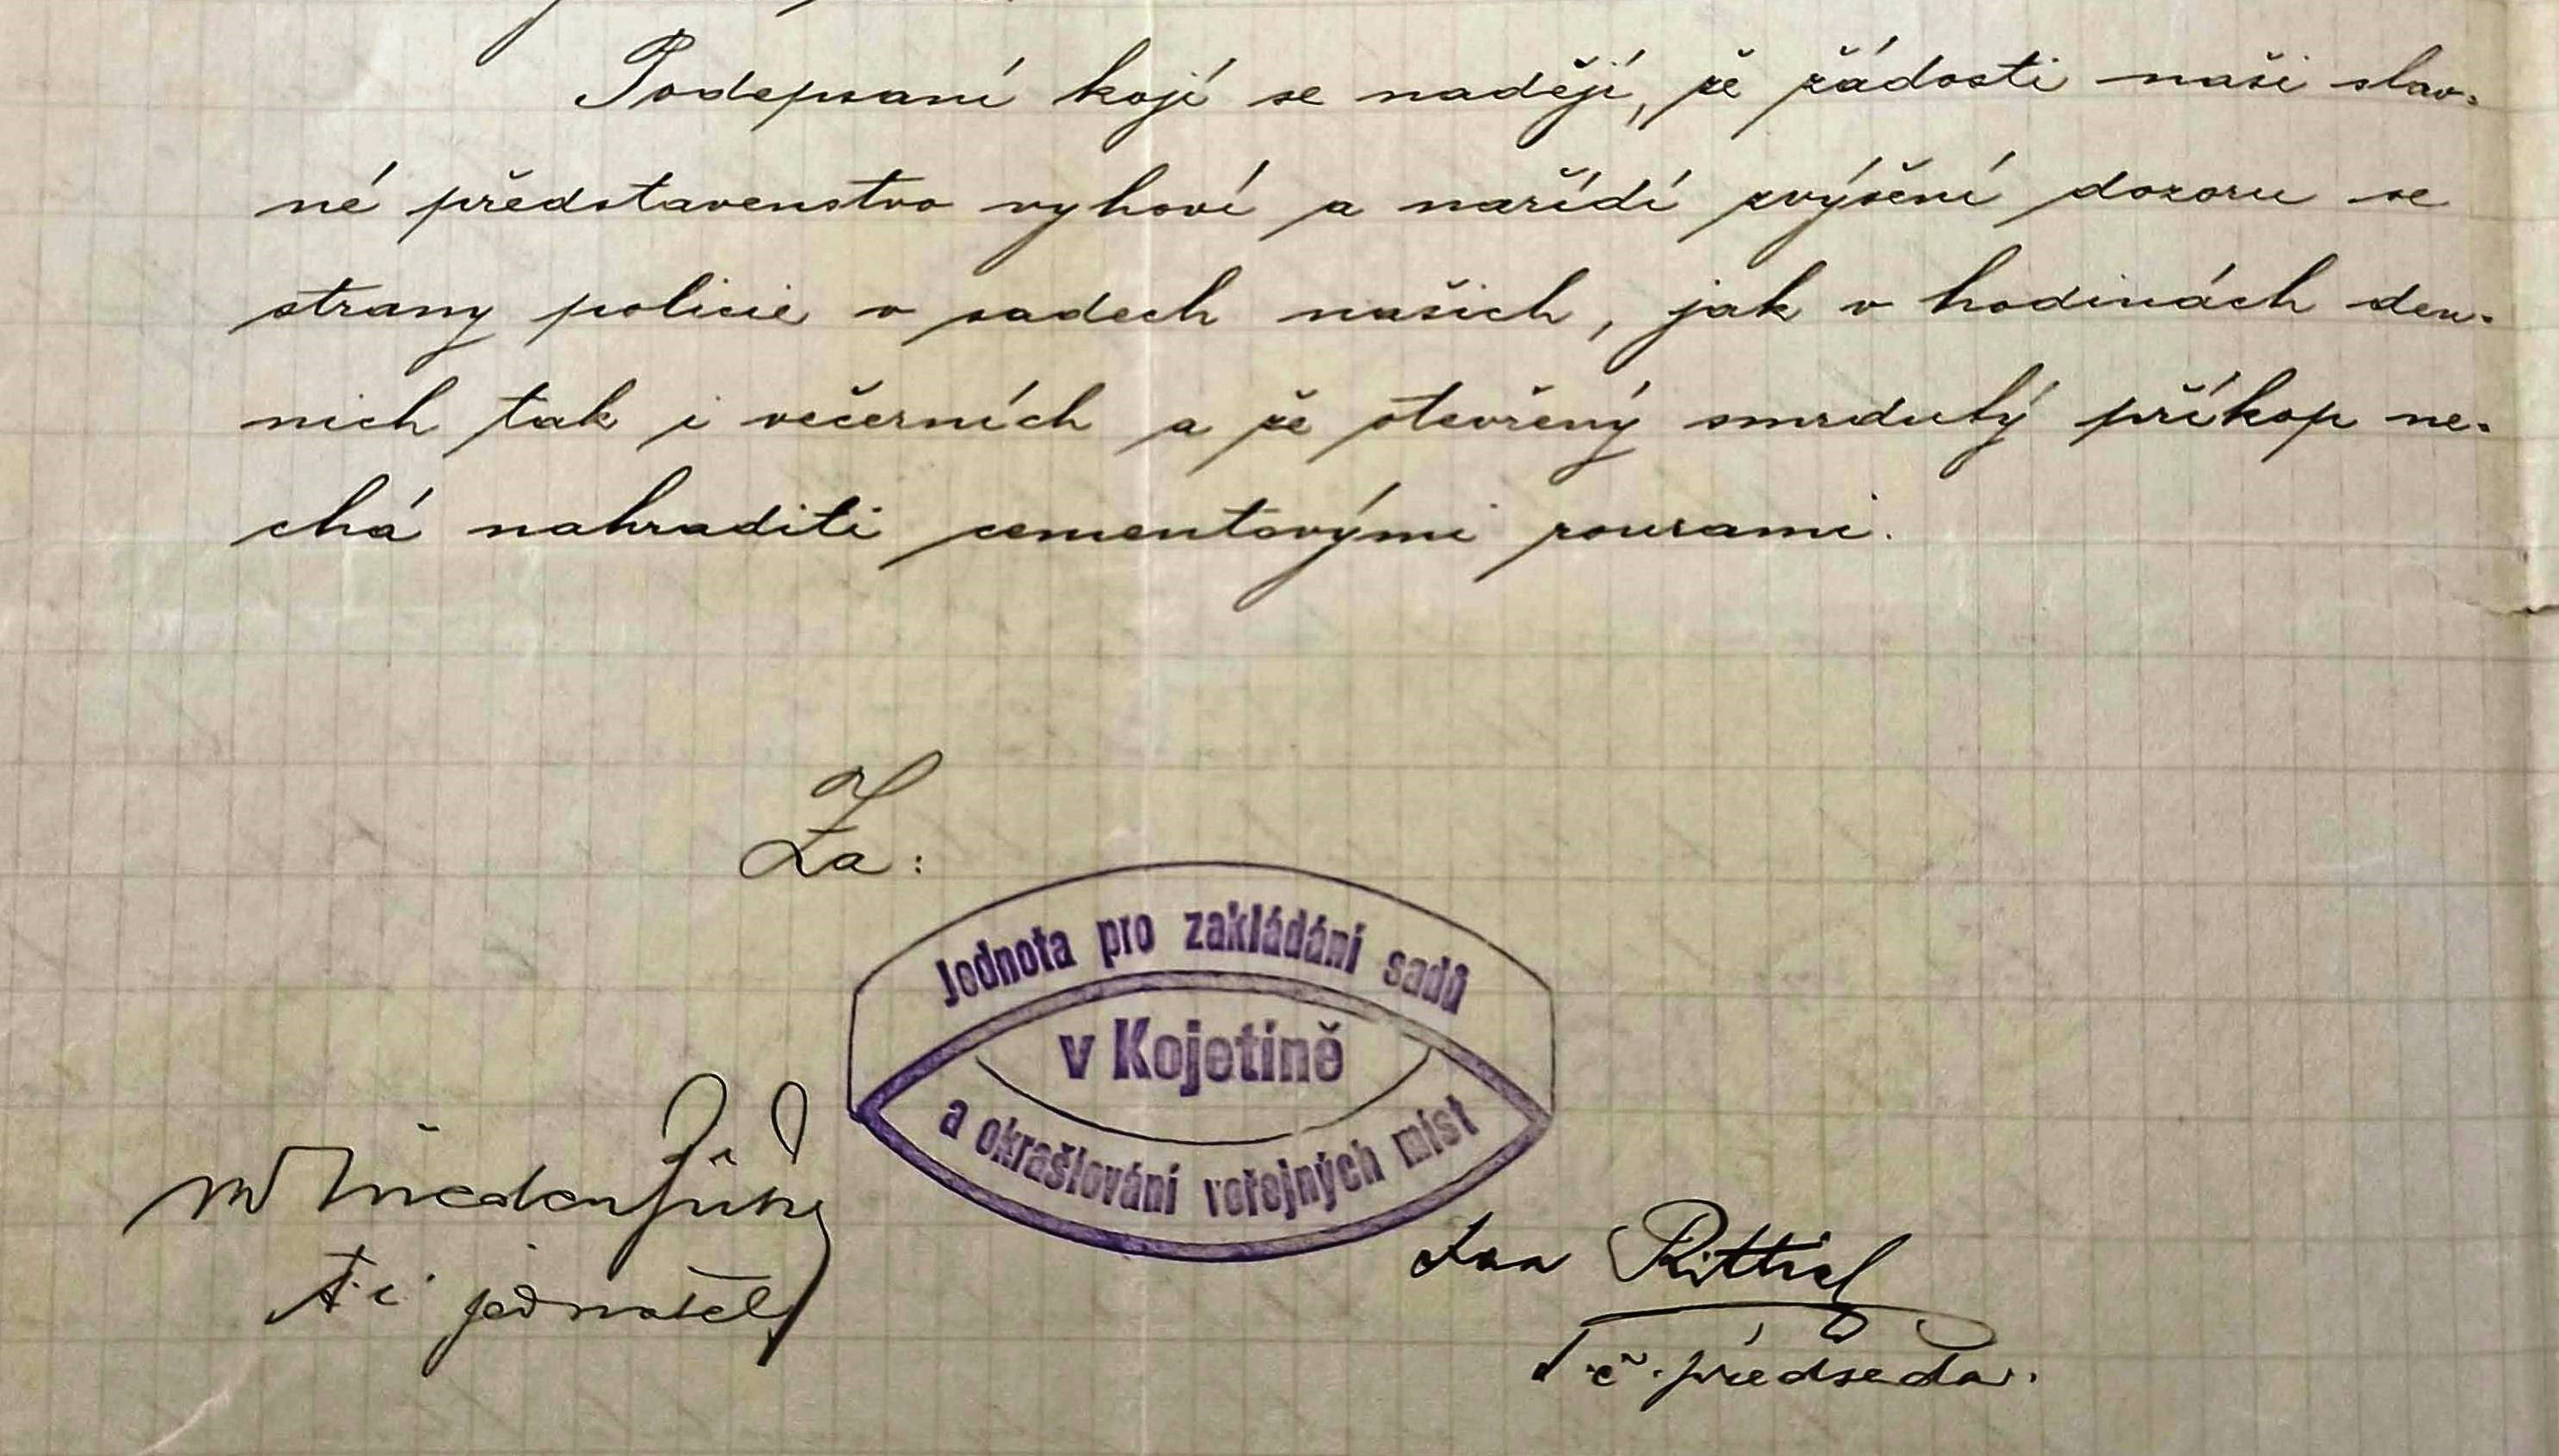 Podepsaní kojí se nadějí, že žádosti naši slav-
né představenstvo vyhoví a nařídí zvýšení dozoru se
strany policie v sadech našich, jak v hodinách den-
ních tak i večerních a že otevřený smrdutý příkop ne-
chá nahraditi cementovými rourami.
Za:
Jednota pro zakládání sadů
v Kojetíně
a okrašlování veřejných míst
t. č. jednatel
Jan Rittich
t. č. předseda.